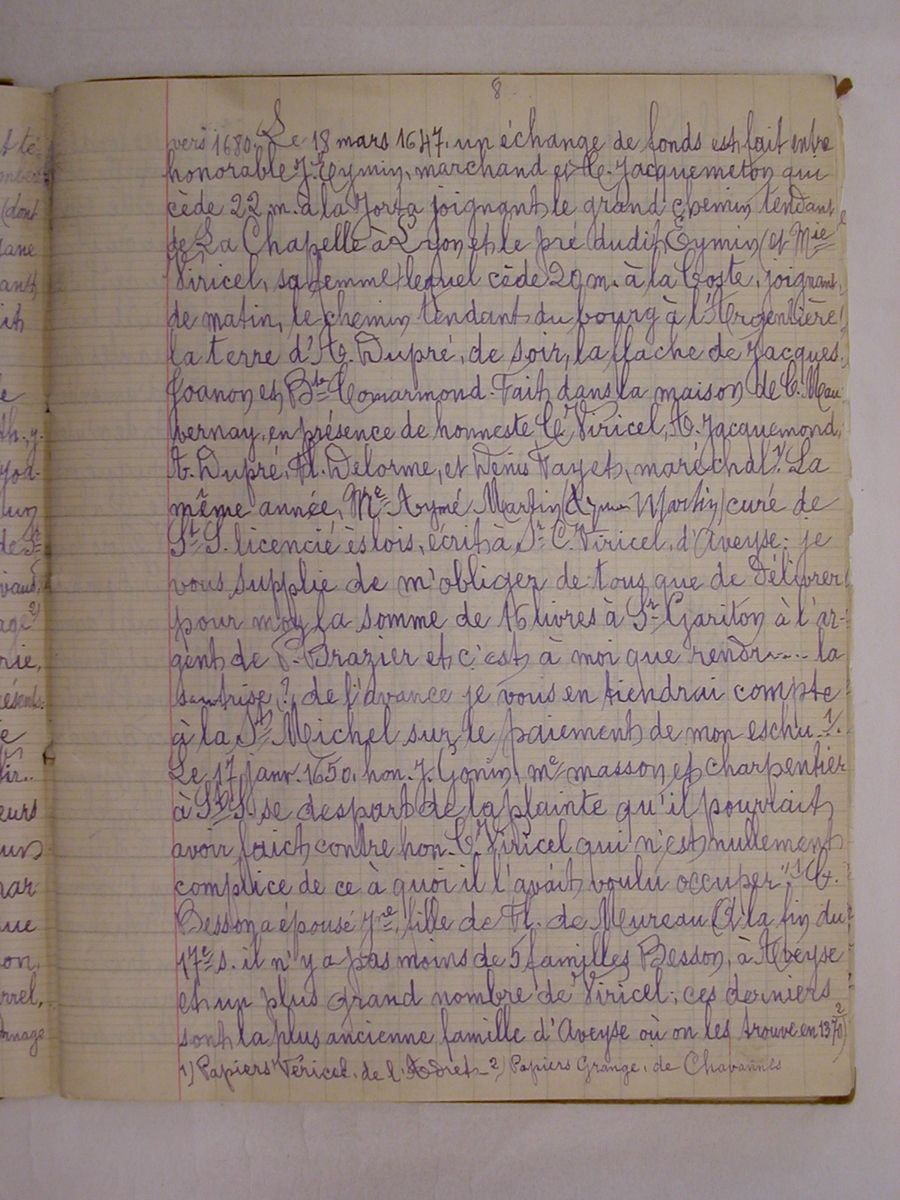 8
vers 1680. Le 18 mars 1647, un échange de fonds est fait entre
honorable J. Eymin, marchand et C. Jacquemeton qui
cède 22 m. à la Jorta joignant le grand chemin tendant
de La Chapelle à Lyon et le pré dudit Eymin (et Mie
Viricel, sa femme) lequel cède 20 m. à la Coste, joignant,
de matin, le chemin tendant du bourg à l'Argentière,
la terre d'A. Dupré, de soir, la flache de Jacques
Joanon et Bte Comarmond. Fait dans la maison de C. Mau
vernay, en présence de honneste C. Viricel, A. Jacquemond,
A. Dupré, Fl. Delorme, et Denis Fayet, maréchal 1). La
même année, Mre Aymé Martin ( Martin) curé de
St S. licencié ès lois, écrit à Sr C. Viricel, d'Aveyse: je
vous supplie de m'obliger de tous que de délivrer
pour moy la somme de 16 livres à Sr Gariton à l'ar-
gent de P. Brazier et c'est à moi que rendr.... la
 (?) de l'avance je vous en tiendrai compte
à la St Michel sur le paiement de mon eschu. 1).
Le 17 janv. 1650, hon. J. Gonin, me masson et charpentier
à St S. se despart de la plainte qu'il pourrait
avoir faict contre hon. C. Viricel qui n'est nullement
complice de ce à quoi il l'avait voulu occuper" 1) C.
Besson a épousé Jne, fille de Fl. de Meureau. A la fin du
17e s. il n'y a pas moins de 5 familles Besson, à Aveyse
et un plus grand nombre de Viricel; ces derniers
sont la plus ancienne famille d'Aveyse où on les trouve en 1370 2)
1) Papiers Véricel, de l'Adret - 2) Papiers Grange, de Chavannes